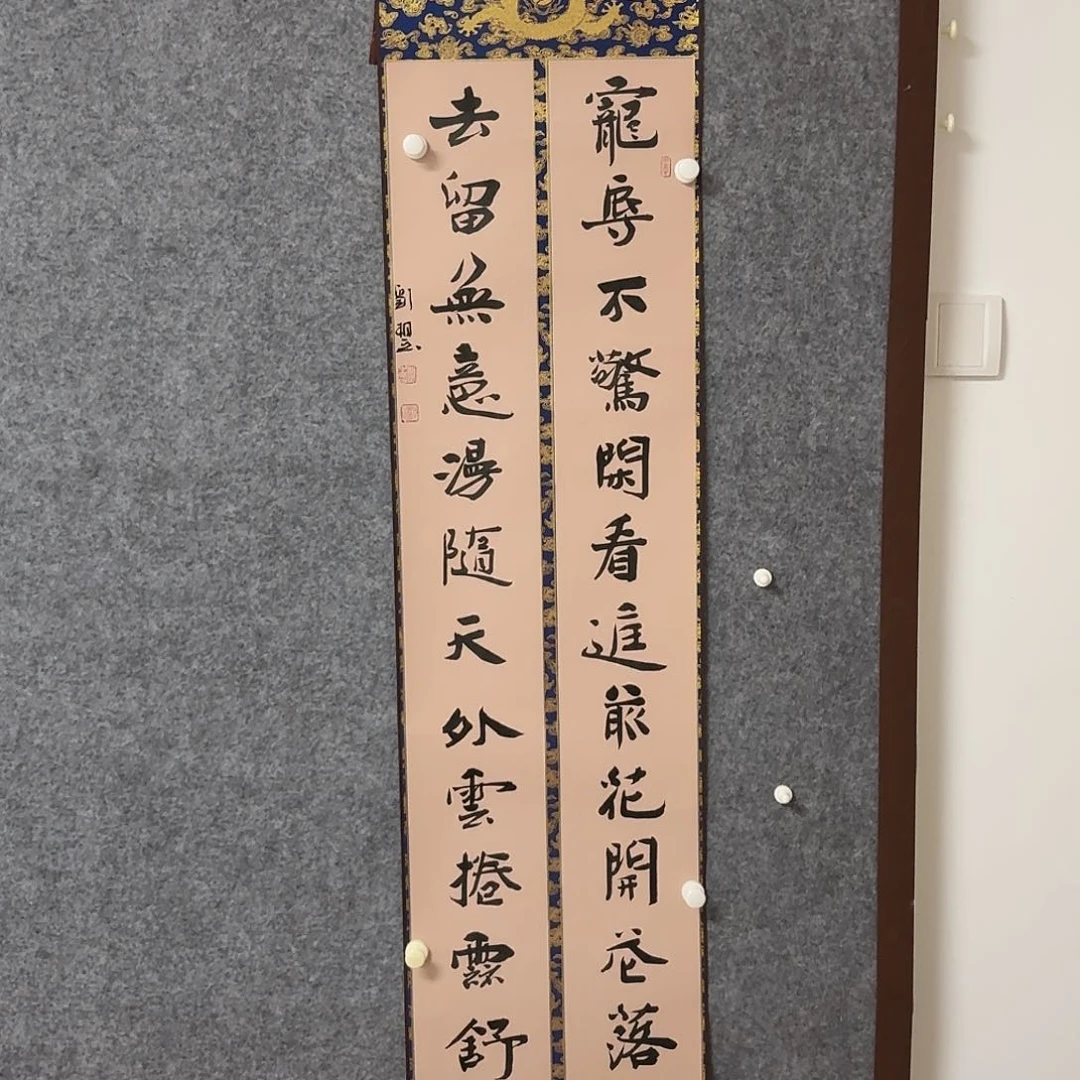 寵辱不驚閑看庭前花開花落
去留無意漫隨天外雲捲雲舒
劉